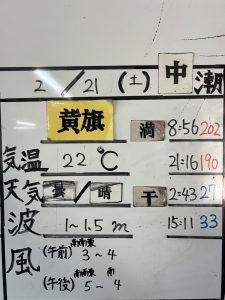 2/21(土) 中潮
黄旗 満 8:56 202
気温 22℃ 21:16 190
天気 曇/晴 干 2:43 27
波 1~1.5m 15:11 33
風 (午前) 南南東 3~4
(午後) 南南東 5~南 4